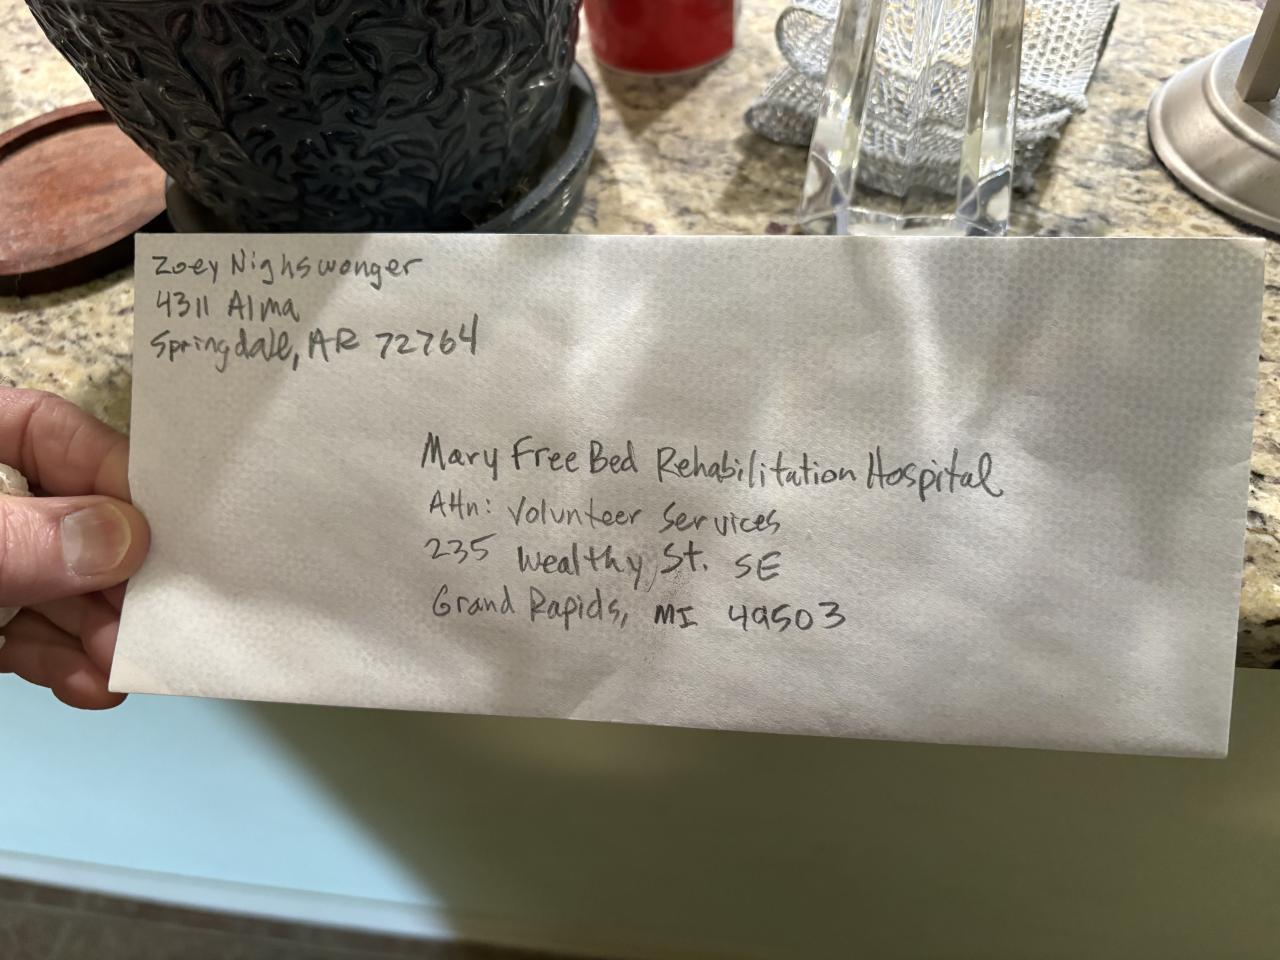 Zoey Nighswonger
4311 Alma
Springdale, AR 72764
Mary Free Bed Rehabilitation Hospital
Attn: Volunteer Services
235 Wealthy St. SE
Grand Rapids, MI 49503